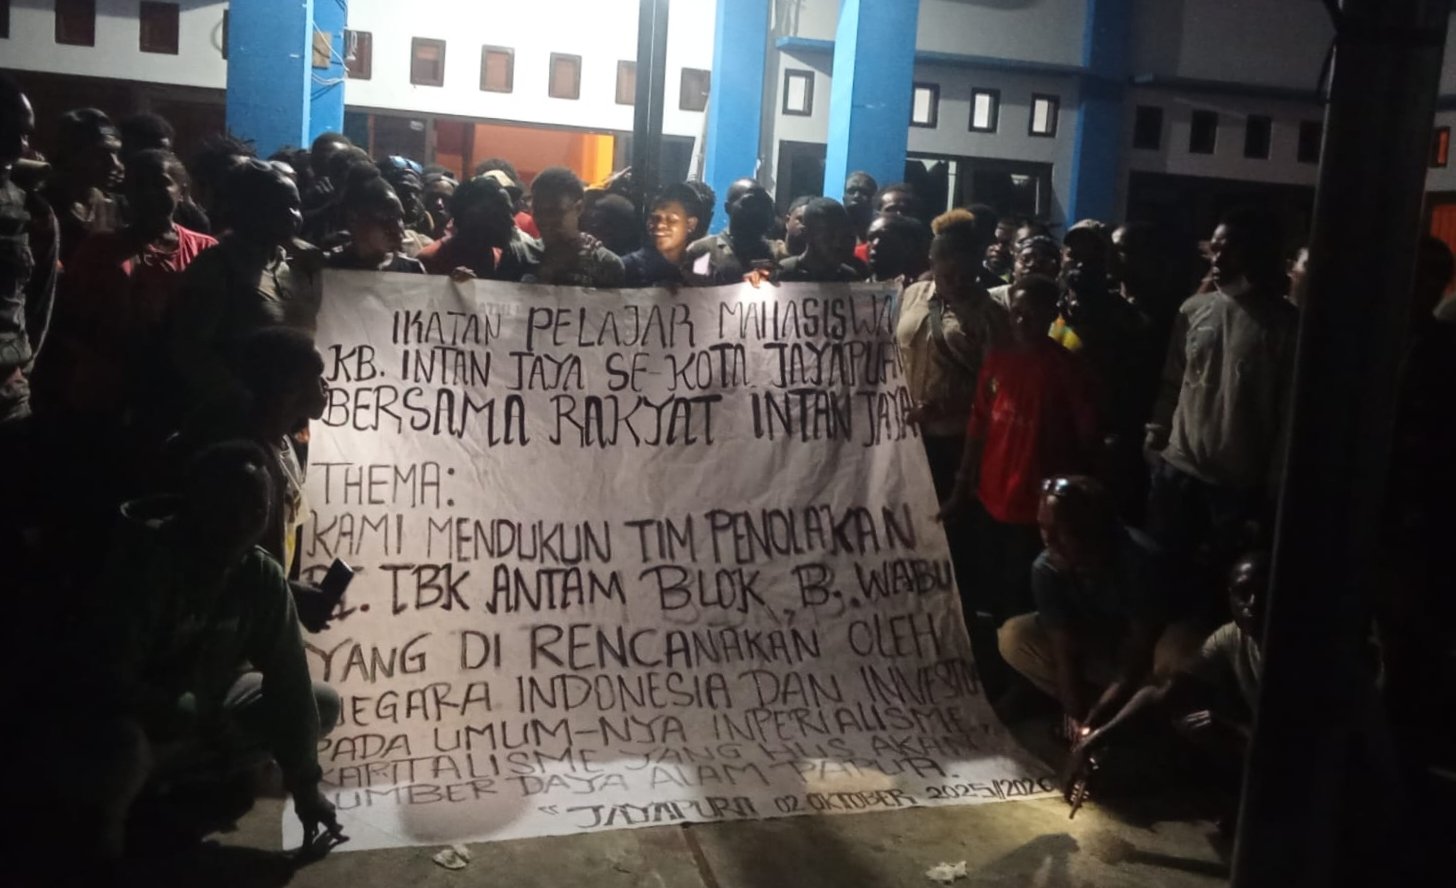 IKATAN PELAJAR MAHASISWA
KB. INTAN JAYA SE-KOTA JAYAPURA
BERSAMA RAKYAT INTAN JAYA
THEMA:
KAMI MENDUKUN TIM PENOLAKAN
PT. TBK ANTAM BLOK, B. WABU
YANG DI RENCANAKAN OLEH
NEGARA INDONESIA DAN INVESTOR
PADA UMUM-NYA INPERIALISME,
KAPITALISME YANG HUS AKAN
SUMBER DAYA ALAM PAPUA.
"JAYAPURA 02 OKTOBER 2025//2026